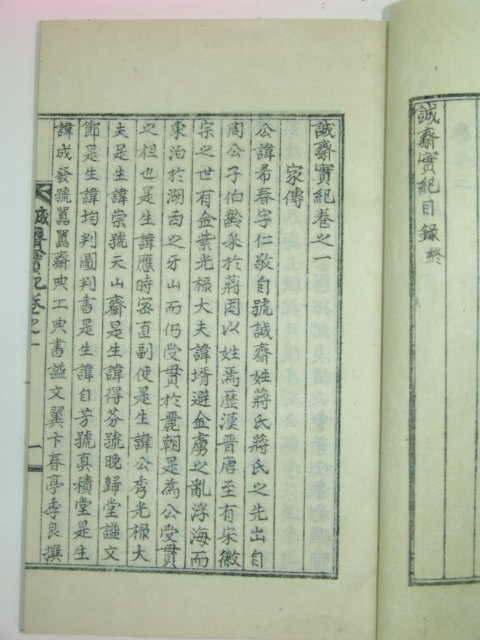 誠齋實紀目錄終
誠齋實紀卷之一
家傳
公諱希春字仁敬自號誠齋姓蔣氏蔣氏之先出自
周公子伯齡采於蔣因以姓焉歷漢晉唐至有宋徽
宗之世有金紫光祿大夫諱壻避金虜之亂浮海而
東泊於湖西之牙山而仍受貫於麗朝是爲公受貫
之祖也是生諱應時密直副使是生諱公秀光祿大
夫是生諱崇號天山齋是生諱得芬號晩歸堂謚文
節是生諱均判圖判書是生諱自芳號真積堂是生
諱成發號嚚嚚齋典工典書謚文翼卞春亭季良撰
誠齋實紀卷之一
一